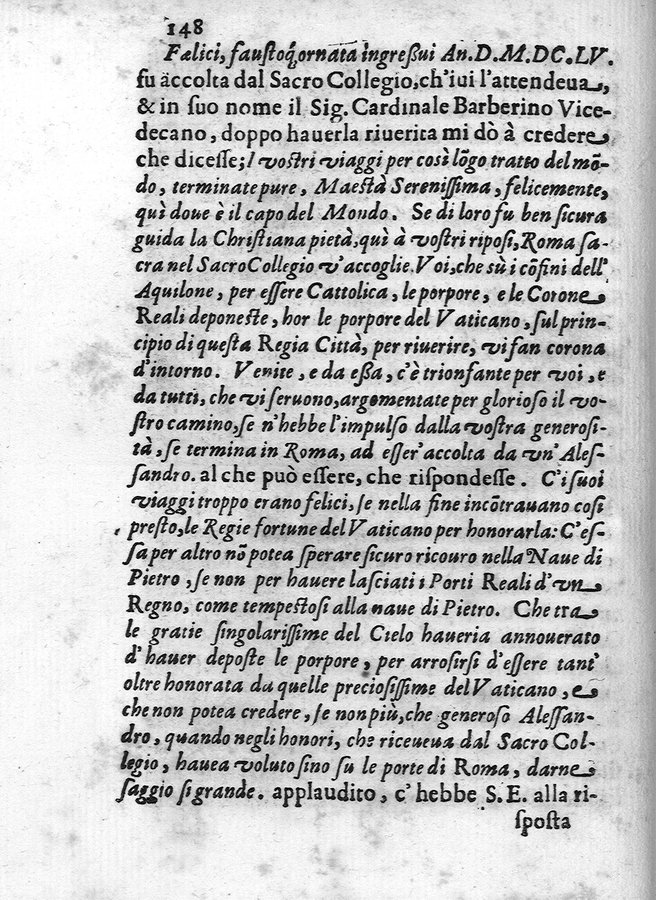 148
Felici, faustoq́; ornata ingreßui An.D.M.DC.LV.
fu accolta dal Sacro Collegio, ch'iui l'attendeua,
& in suo nome il Sig. Cardinale Barberino Vice-
decano, doppo hauerla riuerita mi dò à credere
che dicesse; I vostri viaggi per così lõgo tratto del mõ-
do, terminate pure, Maestà Serenissima, felicemente,
quì doue è il capo del Mondo. Se di loro fu ben sicura
guida la Christiana pietà, quì à vostri riposi, Roma sa-
cra nel Sacro Collegio v'accoglie. Voi, che sù i cõfini dell'
Aquilone, per essere Cattolica, le porpore, e le Corone
Reali deponeste, hor le porpore del Vaticano, sul prin-
cipio di questa Regia Città, per riuerire, vi fan corona
d'intorno. Venite, e da eßa, c'è trionfante per voi, e
da tutti, che vi seruono, argomentate per glorioso il vo-
stro camino, se n'hebbe l'impulso dalla vostra generosi-
tà, se termina in Roma, ad esser'accolta da vn'Ales-
sandro. al che può essere, che rispondesse. C'i suoi
viaggi troppo erano felici, se nella fine incõtrauano cosi
presto, le Regie fortune del Vaticano per honorarla: C'es-
sa per altro nõ potea sperare sicuro ricouro nella Naue di
Pietro, se non per hauere lasciati i Porti Reali d'vn
Regno, come tempestosi alla naue di Pietro. Che tra
le gratie singolarissime del Cielo haueria annouerato
d'hauer deposte le porpore, per arrosirsi d'essere tant'
oltre honorata da quelle preciosissime del Vaticano, e
che non potea credere, se non più, che generoso Alessan-
dro, quando negli honori, che riceueua dal Sacro Col-
legio, hauea voluto sino su le porte di Roma, darne
saggio si grande. applaudito, c'hebbe S.E. alla ri-
sposta